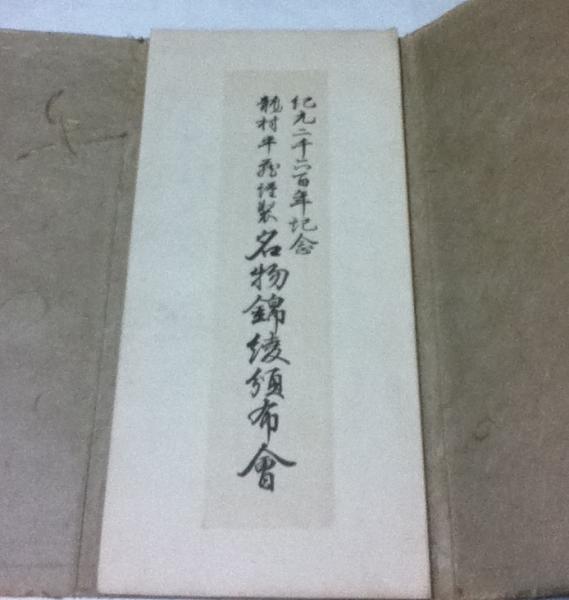 紀元二千六百年記念
龍村平蔵謹製 名物錦綾頒布會